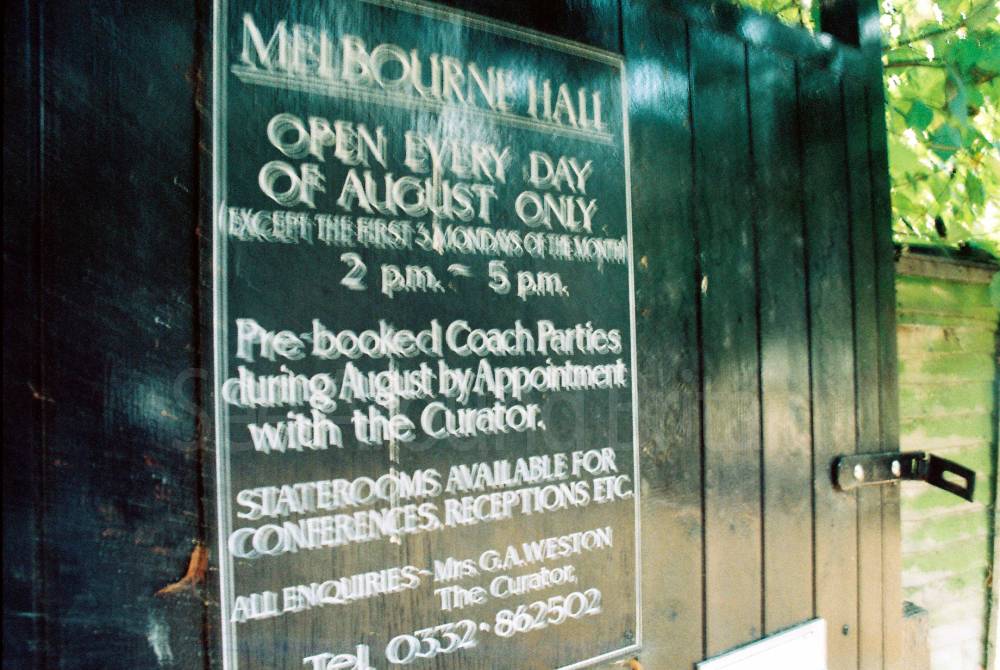 MELBOURNE HALL
OPEN EVERY DAY
OF AUGUST ONLY
(EXCEPT THE FIRST 3 MONDAYS OF THE MONTH)
2 p.m. ~ 5 p.m.
Pre-booked Coach Parties
during August by Appointment
with the Curator.
STATEROOMS AVAILABLE FOR
CONFERENCES, RECEPTIONS ETC.
ALL ENQUIRIES~ Mrs G.A. WESTON
The Curator,
Tel 0332·862502